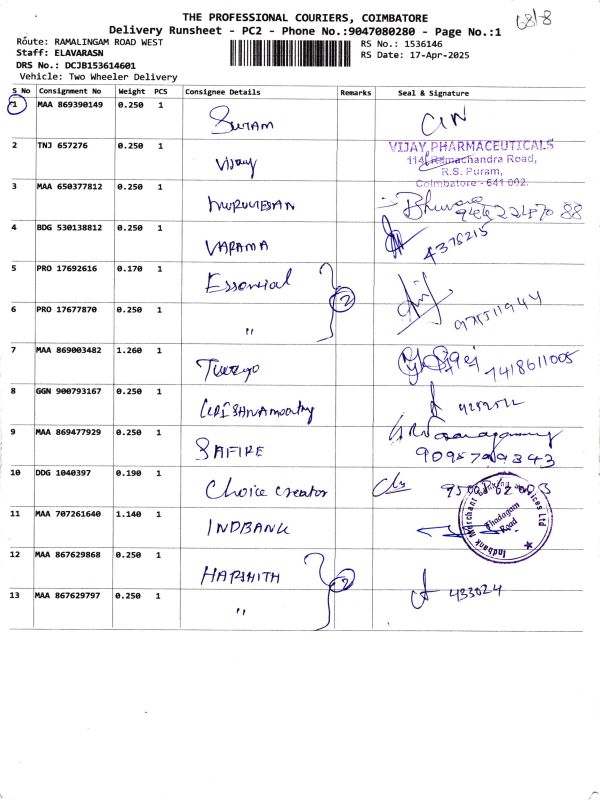 THE PROFESSIONAL COURIERS, COIMBATORE
Delivery Runsheet - PC2 - Phone No.:9047080280 - Page No.:1
Route: RAMALINGAM ROAD WEST
Staff: ELAVARASN
DRS No.: DCJB153614601
Vehicle: Two Wheeler Delivery
RS No.: 1536146
RS Date: 17-Apr-2025
S No Consignment No Weight PCS Consignee Details Remarks Seal & Signature
1 MAA 869390149 0.250 1
2 TNJ 657276 0.250 1 Vijay
VIJAY PHARMACEUTICALS
114, Ramachandra Road,
R.S. Puram,
Coimbatore - 641 002.
3 MAA 650377812 0.250 1 MURUGESAN
4 BDG 530138812 0.250 1 VARAMA 4376215
5 PRO 17692616 0.170 1 Essential 2
6 PRO 17677870 0.250 1 "
7 MAA 869003482 1.260 1 7418611005
8 GGN 900793167 0.250 1 KRISHNAMOORTHY
9 MAA 869477929 0.250 1 SAFIRE
10 DDG 1040397 0.190 1 Choice Creator
11 MAA 707261640 1.140 1 INDBANK
Indbank Merchant Banking Services Ltd
Thadagam
Road
12 MAA 867629868 0.250 1 HARSHITH 2
13 MAA 867629797 0.250 1 " 433024